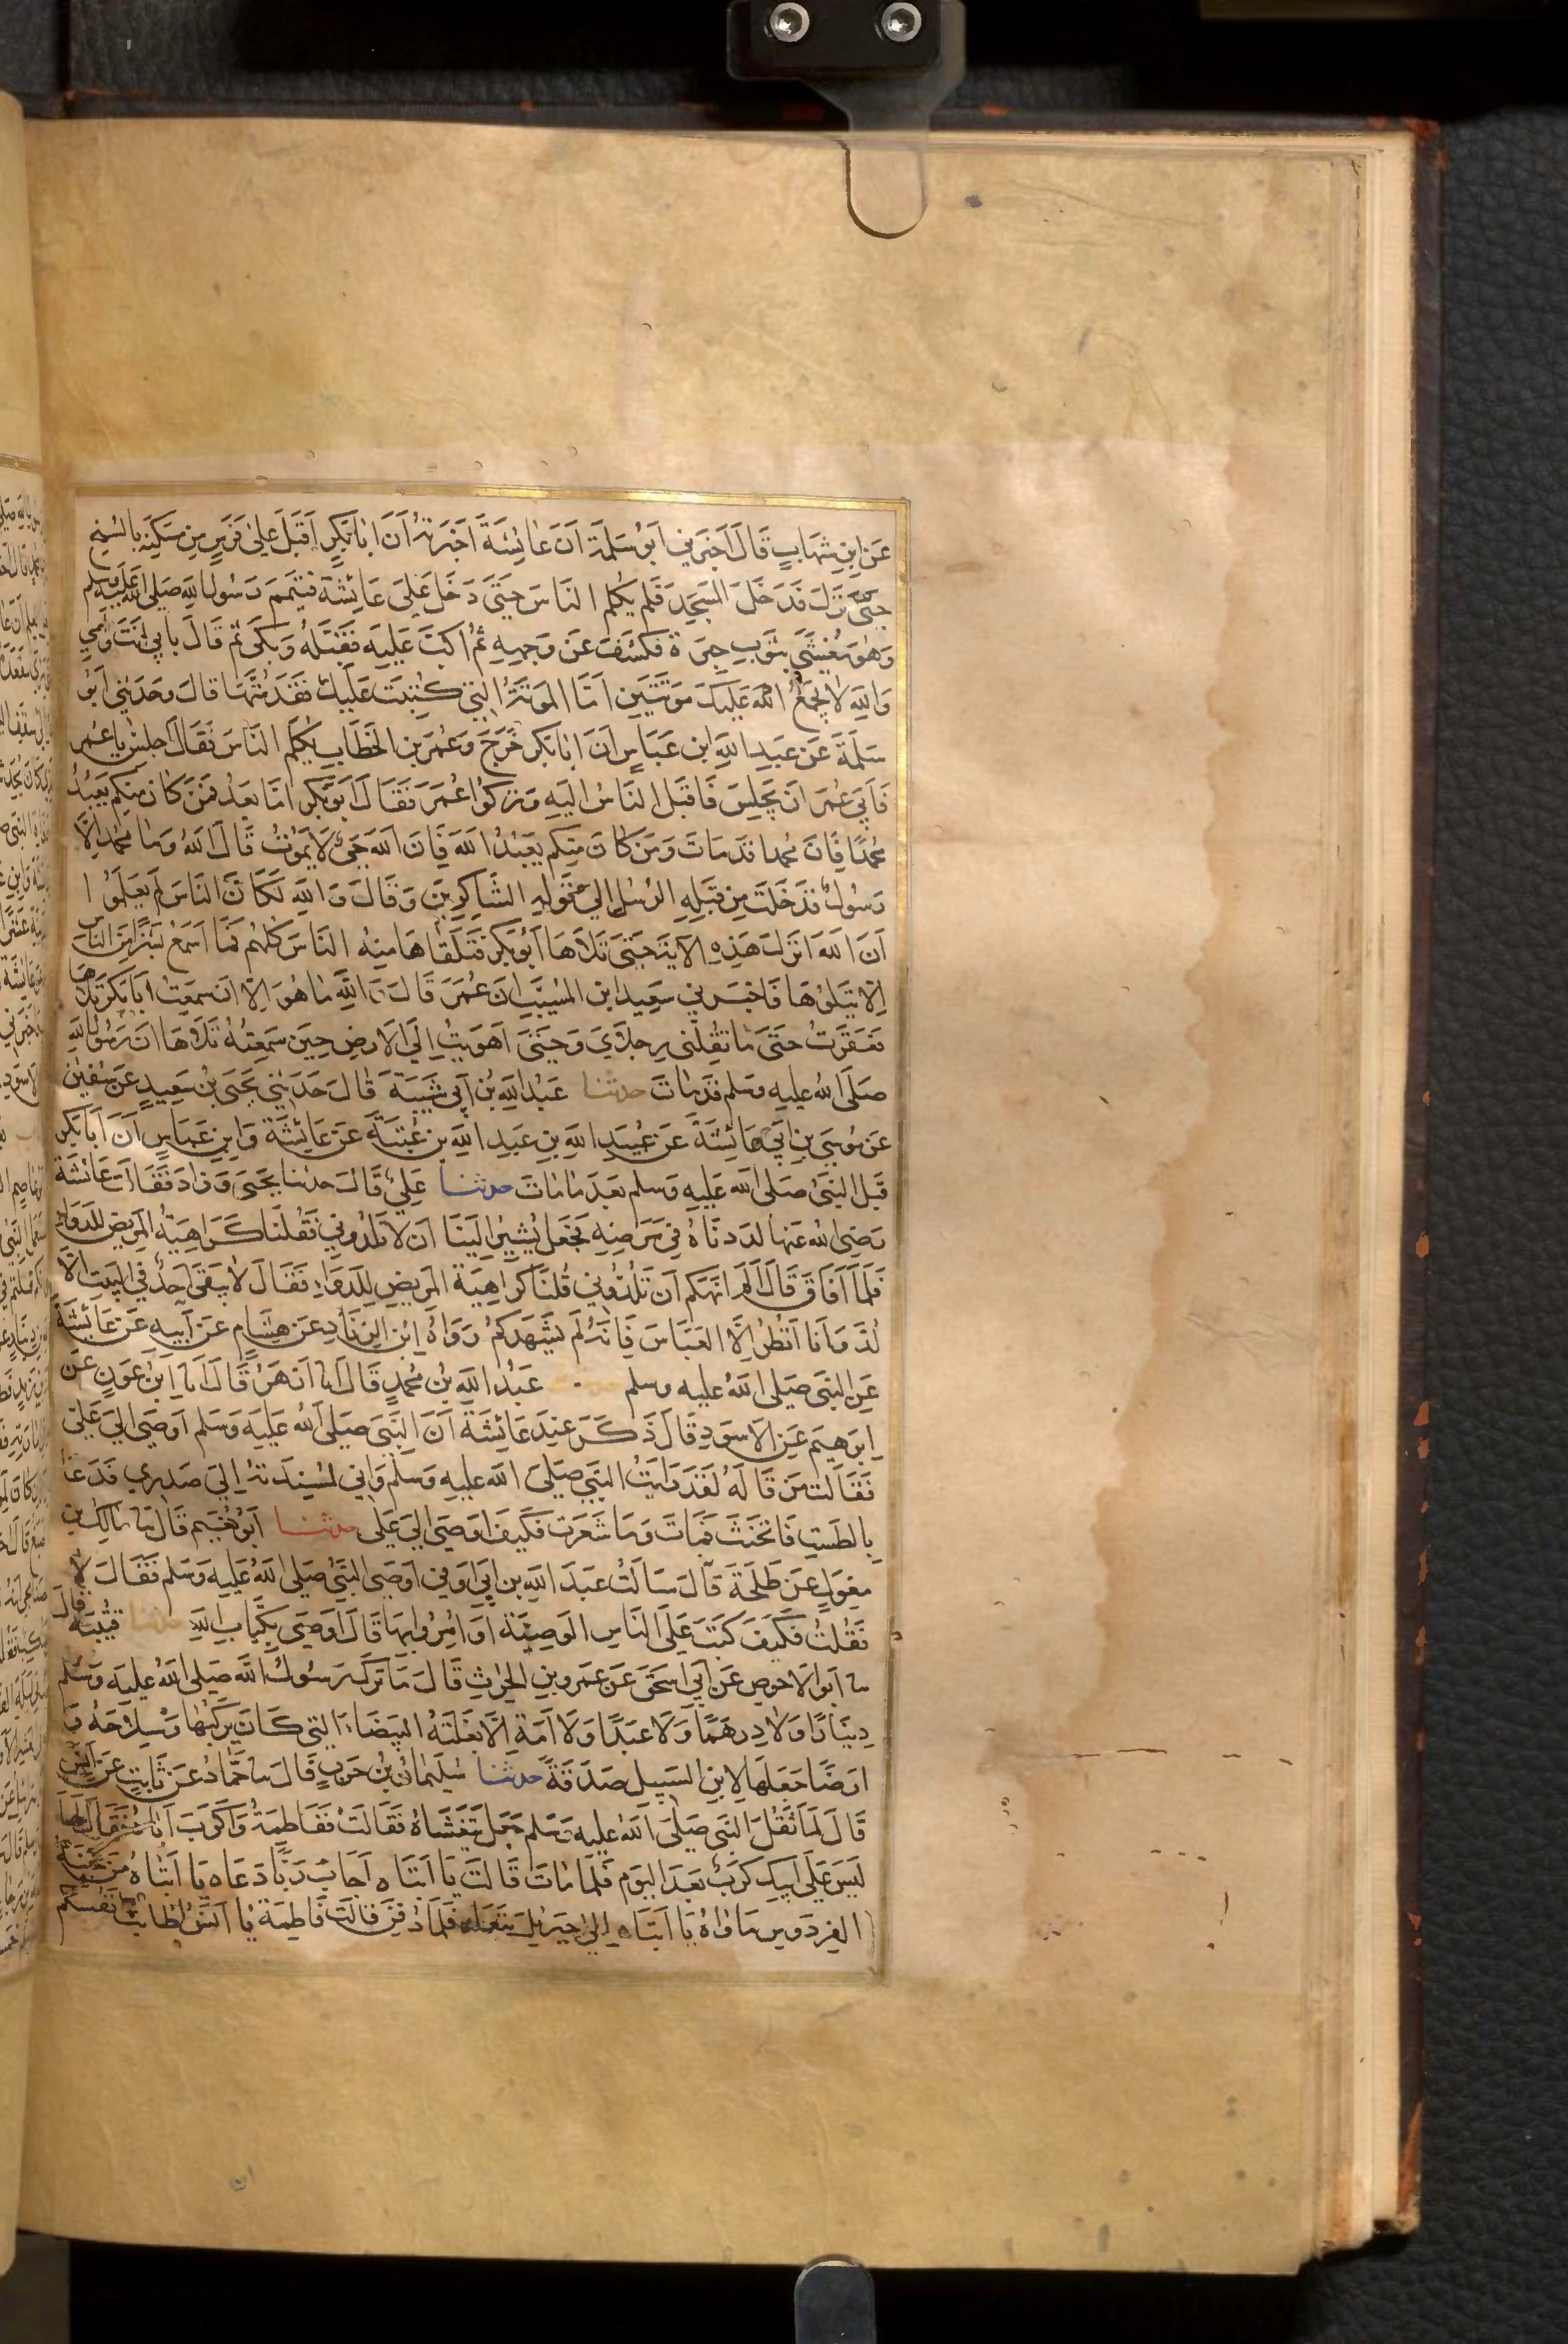 عَنِ ابنِ شِهَابٍ قَالَ اَخبَرَنِي اَبُو سَلَمَةَ اَنَ عَائِشَةَ اَخبَرَتهُ اَنَ اَبَا بَكرٍ اَقبَلَ عَلى فَرَسٍ مِن مَسكَنِهِ بِالسُنحِ
حَتَّى نَزَلَ فَدَخَلَ المَسجِدَ فَلَم يُكَلِم النَاسَ حَتَى دَخَلَ عَلَى عَائِشَةَ فَتَيَمَمَ رَسُولَ اللهِ صَلى الله عَلَيهِ وسلم
وَهُوَ مُغَشَى بِثَوبِ حِبَرَةٍ فَكَشَفَ عَن وَجهِهِ ثُمَ اَكَبَ عَلَيهِ فَقَبَّلَهُ وَبَكَى ثم قَالَ بِاَبِي اَنتَ وَاُمِي
وَاللهِ لَا يَجمَعُ اللهُ عَلَيكَ مَوتَتَينِ اَمَا المَوتَةُ التِي كُتِبَت عَلَيكَ فَقَد مُتَّهَا قَالَ وَحَدَثَنِي اَبُو
سَلَمَةَ عَن عَبدِ اللهِ ابن عَبَاسٍ اَنَ اَبَا بَكر خَرَجَ وَعُمَر بن الخَطَابِ يُكَلِمُ النَاسَ فَقَالَ اجلِس يَا عُمَر
فَاَبَى عُمَر اَن يَجلِسَ فَاَقبَلَ النَاسُ اِلَيهِ وَتَرَكُوا عُمَرَ فَقَالَ اَبُو بَكرٍ اَمَّا بَعدُ فَمَن كَانَ مِنكُم يَعبُدُ
مُحَمَدًا فَاِنَ مُحَمدا قَد مَاتَ وَمَن كَانَ مِنكُم يَعبُدُ اللهَ فَاِنَ اللهَ حَيٌ لَا يَمُوتُ قَالَ اللهُ وَمَا مُحَمد اِلَّا
رَسُولٌ قَد خَلَت مِن قَبلِهِ الرُسُل اِلى قَولِهِ الشَاكِرِينَ وَقَالَ وَاللهِ لَكَاَنَ النَاسَ لَم يَعلَمُوا
اَنَ اللهَ اَنزَلَ هَذِهِ الاَيَةَ حَتَى تَلَاهَا اَبُو بَكر فَتَلَقَاهَا مِنهُ النَاسُ كُلهُم فَمَا اَسمَعُ بَشَرًا مِنَ النَاسِ
اِلّا يَتلُوهَا فَاَخبَرنِي سَعِيد ابن المُسَيَّبِ اَن عُمَرَ قَالَ وَاللهِ مَا هُوَ اِلّا اَن سَمِعتُ اَبَا بَكر تَلَاهَا
فَعَقِرتُ حَتَى مَا تُقِلُنِي رِجلَايَ وَحَتَى اَهوَيتُ اِلَى الاَرضِ حِينَ سَمِعتُهُ تَلَاهَا اَنَ رَسُولَ اللهِ
صَلَى اللهُ عليهِ وسَلم قَد مَاتَ حدثنا عَبدُ اللهِ بنُ اَبِي شَيبَةَ قَالَ حَدَثَنِي يَحيَى بنُ سَعِيدٍ عَن سُفيٰن
عَن مُوسَى بنِ اَبِي عَائِشَةَ عَن عُبَيدِ اللهِ بنِ عَبدِ اللهِ بن عُتبَةَ عَن عَائِشَةَ وَابنِ عَبَاسٍ اَنَ اَبَا بَكرٍ
قَبلَ النبَي صَلى الله عَلَيهِ وَسلم بَعدَ مَا مَاتَ حدثنا عَلِيٌ قَالَ حدثنا يَحيَى وَزَادَ فَقَالَت عَائشَة
رَضِيَ الله عَنهَا لَدَدنَاهُ فِي مَرَضِهِ فَجَعَلَ يُشِيرُ اِلَينَا اَن لَا تَلُدُونِي فَقُلنَا كَرَاهِيَةُ المَرِيضِ لِلدَوَاءِ
فَلَمَا اَفَاقَ قَالَ اَلَم اَنهَكُم اَن تَلُدُّونِي قُلنَا كَرَاهِيَةَ المَرِيضِ لِلدَوَاءِ فَقَالَ لَا يَبقَى اَحَدٌ فِي البَيتِ اِلَّا
لُدَّ وَاَنَا اَنظُرُ اِلَّا العَبَاسَ فَاِنَهُ لَم يَشهَدكُم رَوَاهُ ابنُ الزِنَادِ عَن هِشَامٍ عَن اَبِيهِ عَن عَائِشَةَ
عَنِ النبَي صَلَى اللهُ عليه وسلم عَبدُ اللهِ بنُ مُحَمدٍ قَالَ انا اَزهَرُ قَالَ انا ابنُ عَونٍ عَن
اِبرَهِيمَ عَنِ الاَسوَدِ قَالَ ذَكَرَ عِندَ عَائِشَةَ اَنَ النَبَي صَلَى اللهُ عَلَيهِ وَسَلم اَوصَى اِلَى عَلِيٍ
فَقَالَت مَن قَالَهُ لَقَد رَايتُ النَبي صَلَى اللهُ عليهِ وَسلم وَاِنِي لمُسنِدَتهُ اِلَى صَدرِي فَدَعَا
بِالطَستِ فَانخَنَثَ فَمَاتَ وَمَا شَعَرت فَكَيفَ اَوصَى اِلَى عَلى حدثنا اَبُو نُعَيم قَال ثنا مَالِك بن
مِغوَلٍ عَن طَلحَةَ قَالَ سَاَلتُ عَبدَ اللهِ بن اَبِي اَوفَى اَوصَى النَبيُ صَلَى اللهُ عَلَيهِ وَسَلم فَقَالَ لا
فَقُلتُ فَكَيفَ كَتَبَ عَلَى النَاسِ الوَصِيَةَ اَو اُمِرُوا بِهَا قَالَ اَوصَى بِكِتَابِ اللهِ حدثنا قُتَيبَة قالَ
ثنا اَبُو الاَحوصِ عَن اَبِي اسحَقَ عَن عَمرو بنِ الحٰرِثِ قَالَ مَا تَرَكَ رَسُولُ اللهِ صَلى اللهُ عليهِ وَسلم
دِينَارًا وَلَا دِرهَمًا وَلَا عَبدًا وَلَا اَمَةً اِلَّا بَغلَتَهُ البَيضَاءَ التِي كَانَ يَركَبُهَا وَسِلَاحَهُ وَ
اَرضًا جَعَلَهَا لِابنِ السَبِيلِ صَدَقَةً حدثنا سُلَيمَانُ بنُ حَربٍ قَالَ ثنا حَمَّادُ عَن ثَابِتٍ عَن اَنَسٍ
قَالَ لَمَا ثَقُلَ النبَي صَلَى اللهُ عليه وسَلم جَعَلَ يَتَغَشَاهُ فَقَالَت فَاطِمَةُ وَاكَربَ اَبَاهُ فَقَالَ لَهَا
لَيسَ عَلَى اَبِيكِ كَربٌ بَعدَ اليَوم فَلَمَا مَاتَ قَالَت يَا اَبَتَاه اَجَابَ رَبًّا دَعَاه يَا اَبَتَاهُ مَن جَنَّةُ
الفِردَوسِ مَاوَاهُ يَا اَبَتَاه اِلَى جِبرَئِلَ نَنعَاه فَلَمَا دُفِنَ قَالَت فَاطِمَة يَا اَنَسُ اَطَابَت نَفُسُكُم